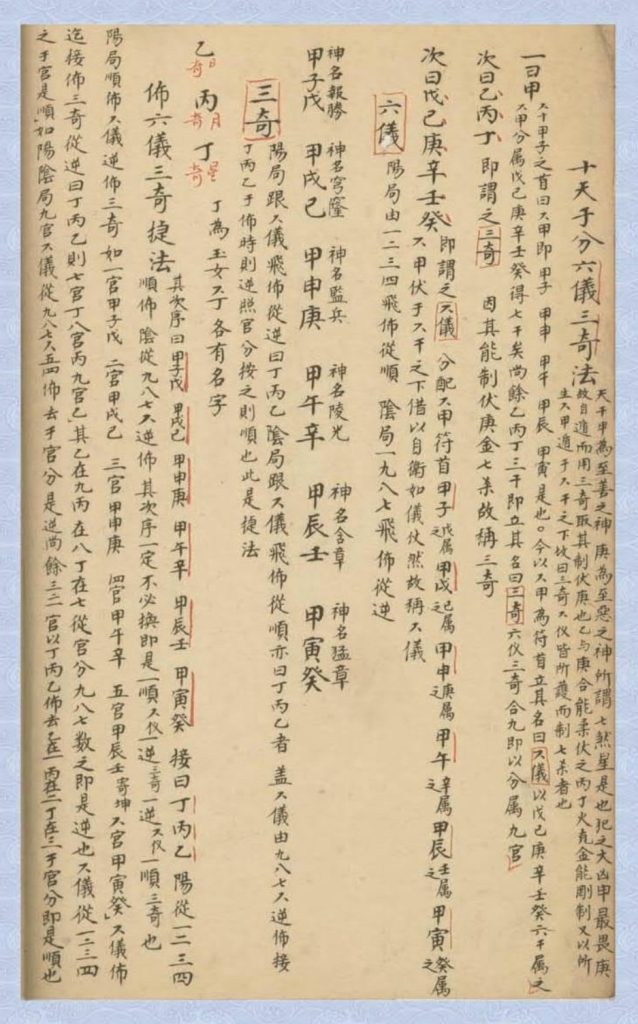 十天干分六儀三奇法
天干甲為至善之神庚為至惡之神所謂七煞星是也犯之大凶甲最畏庚
故自遁而用三奇取其制伏庚也乙与庚合能柔伏之丙丁火克金能剛制又以所
生六甲遁于六干之下故曰三奇六仪皆所護而制七杀者也
一曰甲
六十甲子之首曰六甲即甲子 甲申 甲午 甲辰 甲寅是也。今以六甲為符首立其名曰六儀以戊己庚辛壬癸六干属之
六甲分属戊己庚辛壬癸得七干矣尚餘乙丙丁三干即立其名曰三奇六仪三奇合九即以分属九宫
次曰乙丙丁 即謂之三奇 因其能制伏庚金七杀故稱三奇
次曰戊己庚辛壬癸
即謂之六儀 分配六甲符首甲子戊属之甲戌己属之甲申庚属之甲午辛属之甲辰壬属之甲寅癸属之
六甲伏于六干之下借以自衛如儀仗然故稱六儀
六儀 陽局由一二三四飛佈從順 陰局一九八七飛佈從逆
神名報勝 神名宮窿 神名監兵 神名陵光 神名含章 神名猛章
甲子戊 甲戌己 甲申庚 甲午辛 甲辰壬 甲寅癸
三奇
陽局跟六儀飛佈從逆曰丁丙乙陰局跟六儀飛佈從順亦曰丁丙乙者 盖六儀由九八七六逆佈接
丁丙乙于佈時則逆照宫分按之則順也此是捷法
乙日奇 丙月奇 丁星奇 丁為玉女六丁各有名字
佈六儀三奇捷法
其次序曰甲子戊 甲戌己 甲申庚 甲午辛 甲辰壬 甲寅癸 接曰丁丙乙 陽從一二三四
順佈 陰從九八七六逆佈 其次序一定不必换即是一順六仪一逆三奇一逆六仪一順三奇也
陽局順佈六儀逆佈三奇 如一宫甲子戊 二宫甲戌己 三宫甲申庚 四宫甲午辛 五宫甲辰壬寄坤 六宫甲寅癸」六儀佈
迄接佈三奇從逆曰丁丙乙則七宫丁八宫丙九宫乙」其乙在九丙在八丁在七從宫分九八七数之即是逆也六儀從一二三四
之于宫是順」如陽陰局九宫六儀從九八七六五四佈去于宫分是逆尚餘三二一宫以丁丙乙佈去乙在一丙在二丁在三于宫分即是順也